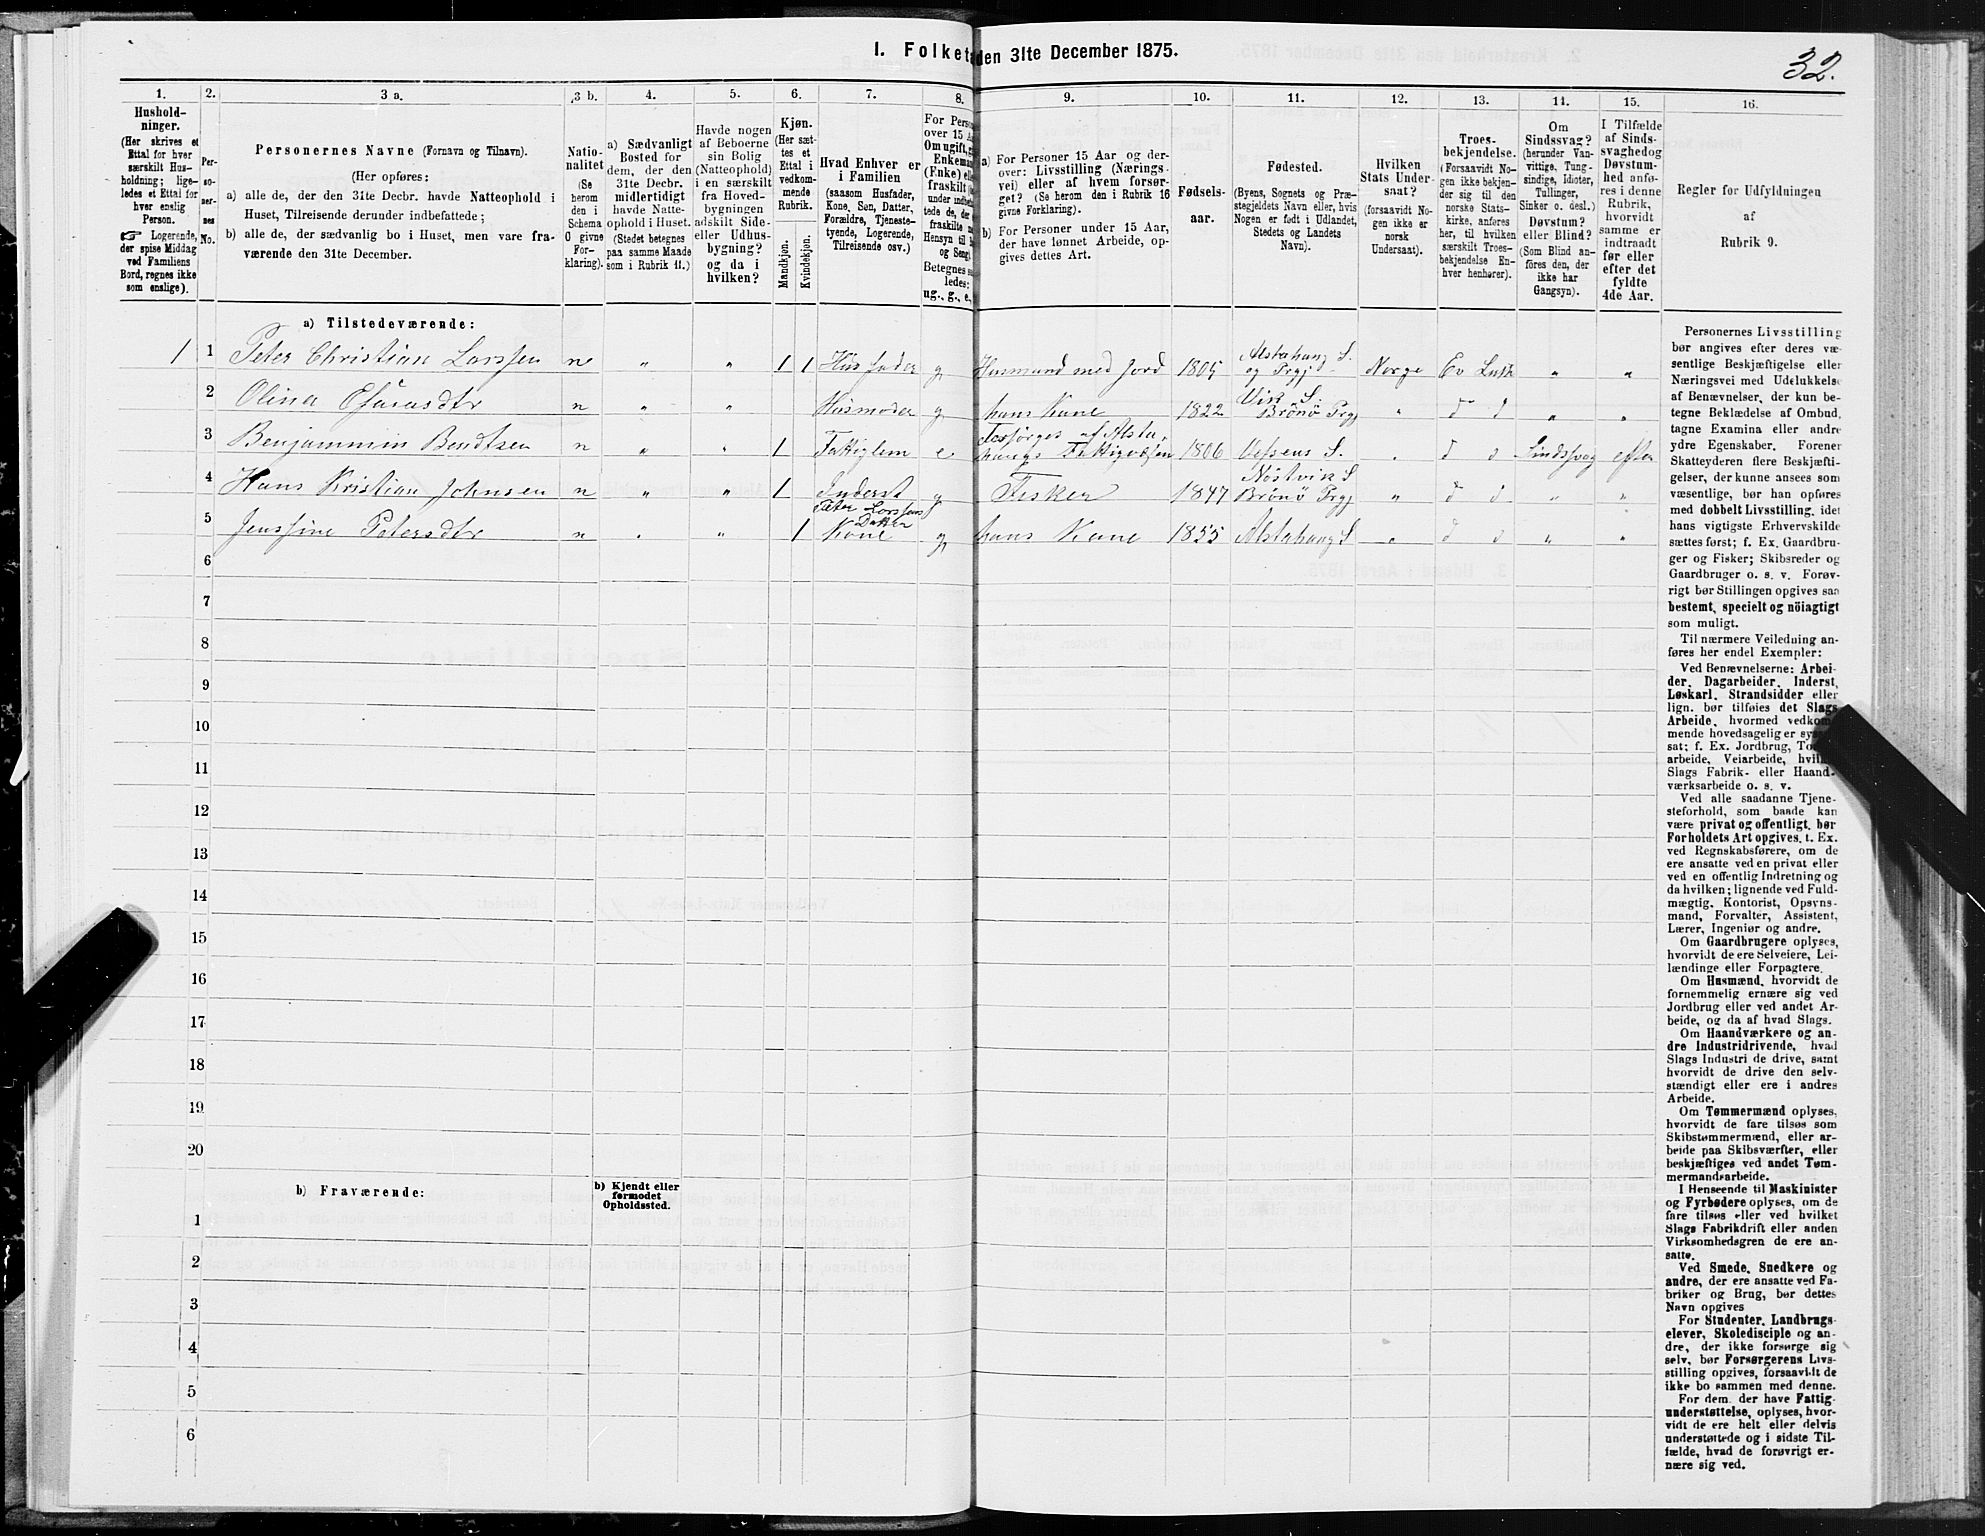 1. Folketæ den 31te December 1875.
32.
1.
2.
3 a.
3 b.
4.
5.
6.
7.
8.
9.
10.
11.
12.
13.
14.
15.
16.
Hushold-
ninger.
(Her skrives et
Ettal for hver
særskilt Hus-
holdning; lige-
ledes et Ettal for
hver enslig
Person.
☞ Logerende,
der spise Middag
ved Familiens
Bord, regnes ikke
som enslige).
Per-
so-
ner-
nes
No.
Personernes Navne (Fornavn og Tilnavn).
(Her opføres:
a) alle de, der den 31te Decbr. havde Natteophold i
Huset, Tilreisende derunder indbefattede;
b) alle de, der sædvanlig bo i Huset, men vare fra-
værende den 31te December.
Natio-
nalitet
(Se
herom
den i
Schema
O givne
For-
klaring).
a) Sædvanligt
Bosted for
dem, der den
31te Decbr.
midlertidigt
havde Natte-
ophold i Huset.
(Stedet betegnes
paa samme Maade
som i Rubrik 11.)
Havde nogen
af Beboerne
sin Bolig
(Natteophold)
i en særskilt
fra Hoved-
bygningen
adskilt Side-
eller Udhus-
bygning?
og da i
hvilken?
Kjøn.
(Her sæt-
tes et
Ettal i
vedkom-
mende
Rubrik.
Mandkjøn.
Kvindekjøn.
Hvad Enhver er
i Familien
(saasom Husfader,
Kone, Søn, Datter,
Forældre, Tjeneste-
tyende, Logerende,
Tilreisende osv.)
For Perso
over 15 A
Om ugift, g
Enkeman
(Enke) elle
fraskilt (
under indbe
tede de, de
fraskilte
Hensyn til
og Seng)
Betegnes s
ledes:
ug., g., e,
a) For Personer 15 Aar og der-
over: Livsstilling (Nærings-
vei) eller af hvem forsør-
get? (Se herom den i Rubrik 16
givne Forklaring).
b) For Personer under 15 Aar,
der have lønnet Arbeide, op-
gives dettes Art.
Fødsels-
aar.
Fødested.
(Byens, Sognets og Præ-
stegjeldets Navn eller, hvis
Nogen er født i Udlandet,
Stedets og Landets
Navn).
Hvilken
Stats Under-
saat?
(forsaavidt No-
gen ikke er
norsk
Undersaat).
Troes-
bekjendelse.
(Forsaavidt No-
gen ikke bekjen-
der sig til den
norske Stats-
kirke, anføres
her, til hvilken
særskilt Troes-
bekjendelse En-
hver henhører).
Om
Sindssvag?
(herunder Van-
vittige, Tung-
sindige, Idioter,
Tullinger,
Sinker o. desl.)
Døvstum?
eller Blind?
(Som Blind an-
føres den, der
ikke har
Gangsyn).
I Tilfælde
af Sinds-
svaghed og
Døvstum-
hed anfø-
res i denne
Rubrik,
hvorvidt
samme er
indtraadt
før eller
efter det
fyldte
4de Aar.
Regler for Udfyldningen
af
Rubrik 9.
a) Tilstedeværende:
1 1 Peter Christian Larssen n " " 1 1 Husfader g Husmand med Jord 1805 Alstahaug S. og Prgj Norge Ev Luth " "
2 Olina Esaiasdtr n " " Husmoder g hans Kone 1822 Vik S. Brønø Prgj " d d " "
3 Benjammin Bendtsen n " " 1 Fattiglem e Forsørges af Alsta- haugs Fattigvæsen 1806 Vefsens S. " d d Sindssvag efter
4 Hans Kristian Johnsen n " " 1 Inderst g Fisker 1847 Nøstvik S Brønø Prgj " d d " "
5 Jenssine Petersdtr n " " 1 Peter Larssens Datter Kone g hans Kone 1855 Alstahaug S " d d " "
6
7
8
9
10
11
12
13
14
15
16
17
18
19
20
b) Fraværende:
b) Kjendt eller
formodet
Opholdssted.
1
2
3
4
5
6
Personernes Livsstilling
bør angives efter deres væ-
sentlige Beskjæftigelse eller
Næringsvei med Udelukkelse
af Benævnelser, der kun be-
tegne Beklædelse af Ombud,
tagne Examina eller andre
ydre Egenskaber. Forener
Skatteyderen flere Beskjæfti-
gelser, der kunne ansees som
væsentlige, bør han opføres
med dobbelt Livsstilling, idet
hans vigtigste Erhvervskilde
sættes først; f. Ex. Gaardbru-
ger og Fisker; Skibsreder og
Gaardbruger o. s. v. Forøv-
rigt bør Stillingen opgives saa
bestemt, specielt og nöiagtigt
som muligt.
Til nærmere Veiledning an-
føres her endel Exempler:
Ved Benævnelserne: Arbei-
der, Dagarbeider, Inderst,
Løskarl, Strandsidder eller
lign. bør tilføies det Slags
Arbeide, hvormed vedkom-
mende hovedsagelig er sys
sat; f. Ex. Jordbrug, To
arbeide, Veiarbeide, hvil
Slags Fabrik- eller Haand-
værksarbeide o. s. v.
Ved alle saadanne Tjene-
steforhold, som baade kan
være privat og offentligt, bør
Forholdets Art opgives, t. Ex.
ved Regnskabsførere, om de
ere ansatte ved en privat eller
ved en offentlig Indretning og
da hvilken; lignende ved Fuld-
mægtig, Kontorist, Opsyns-
mand, Forvalter, Assistent,
Lærer, Ingeniør og andre.
Om Gaardbrugere oplyses,
hvorvidt de ere Selveiere, Lei-
lændinge eller Forpagtere.
Om Husmænd, hvorvidt de
fornemmelig ernære sig ved
Jordbrug eller ved andet Ar-
beide, og da af hvad Slags.
Om Haandværkere og an-
dre Industridrivende, hvad
Slags Industri de drive, samt
hvorvidt de drive den selv-
stændigt eller ere i andres
Arbeide.
Om Tømmermænd oplyses,
hvorvidt de fare tilsøs som
Skibstømmermænd, eller ar-
beide paa Skibsværfter, eller
beskjæftiges ved andet Tøm-
mermandsarbeide.
I Henseende til Maskinister
og Fyrbødere oplyses, om de
fare tilsøs eller ved hvilket
Slags Fabrikdrift eller anden
Virksomhedsgren de ere an-
satte.
Ved Smede, Snedkere og
andre, der ere ansatte ved Fa-
briker og Brug, bør dettes
Navn opgives
For Studenter, Landbrugs-
elever, Skoledisciple og an-
dre, der ikke forsørge sig
selv, bør Forsørgerens Livs-
stilling opgives, forsaavidt de
ikke bo sammen med denne.
For dem, der have Fattig-
understøttelse, oplyses, hvor-
vidt de ere helt eller delvis
understøttede og i sidste Til-
fælde, hvad de forøvrigt er-
nære sig ved.